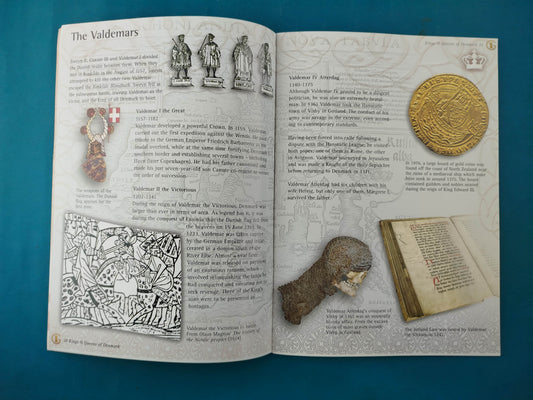 The Valdemars
Sweyn II, Canute III and Valdemar I divided
the Danish state between them. When they
met in Roskilde in the August of 1157, Sweyn
attempted to kill the other two. Valdemar
escaped the Roskilde Bloodbath. Sweyn fell at
the subsequent battle, leaving Valdemar as the
victor, and the King of all Denmark to boot.
Valdemar I the Great
1157-1182
Valdemar developed a powerful Crown. In 1159, Valdemar
carried out the first expedition against the Wends. He paid
tribute to the German Emperor Friedrich Barbarossa as his
feudal overlord, while at the same time fortifying Denmark's
southern border and establishing several towns - including
Havn (later Copenhagen). He had his father canonised and
made his just seven-year-old son Canute co-regent to secure
the order of succession.
The weapons of the
Valdemars. The Danish
flag appears for the
first time.
Valdemar II the Victorious
1202-1241
During the reign of Valdemar the Victorious, Denmark was
larger than ever in terms of area. As legend has it, it was
during the conquest of Estonia that the Danish flag fell from
the heavens on 15 June 1219. In
1223, Valdemar was taken captive
by the German Emperor and incar-
cerated in a donjon
River Elbe. Almost a year later
Valdemar was released on payment
of an enormous ransom, which
involved relinquishing the lands he
had conquered and vowing not to
seek revenge. Three of the King's
sons were to be presented as
hostages.
Valdemar the Victorious in battle.
From Olaus Magnus' The history of
the Nordic project (1555)
20 Kings & Queens of Denmark
Kings & Queens of Denmark 21
Valdemar IV Atterdag
1340-1375
Although Valdemar proved to be a diligent
politician, he was also an extremely brutal
man. In 1361 Valdemar took the Hanseatic
town of Visby in Gotland. The conduct of his
army was savage in the extreme, even accord-
ing to contemporary standards.
Having been forced into exile following a
dispute with the Hanseatic League, he visited
both popes; one of them in Rome, the other
in Avignon. Valdemar journeyed to Jerusalem
and was made a Knight of the Holy Sepulchre
before returning to Denmark in 1371.
Valdemar Atterdag had six children with his
wife Helvig, but only one of them, Margrete I,
survived the father.
In 1996, a large hoard of gold coins was
found off the coast of North Zealand near
the ruins of a medieval ship which must
have sunk in around 1375. The hoard
contained guilders and nobles minted
during the reign of King Edward III.
Valdemar Atterdag's conquest of
Visby in 1361 was an extremely
bloody affair. From the excava-
tions of mass graves outside
Visby in Gotland.
The Jutland Law was issued by Valdemar
the Victorious 1241.